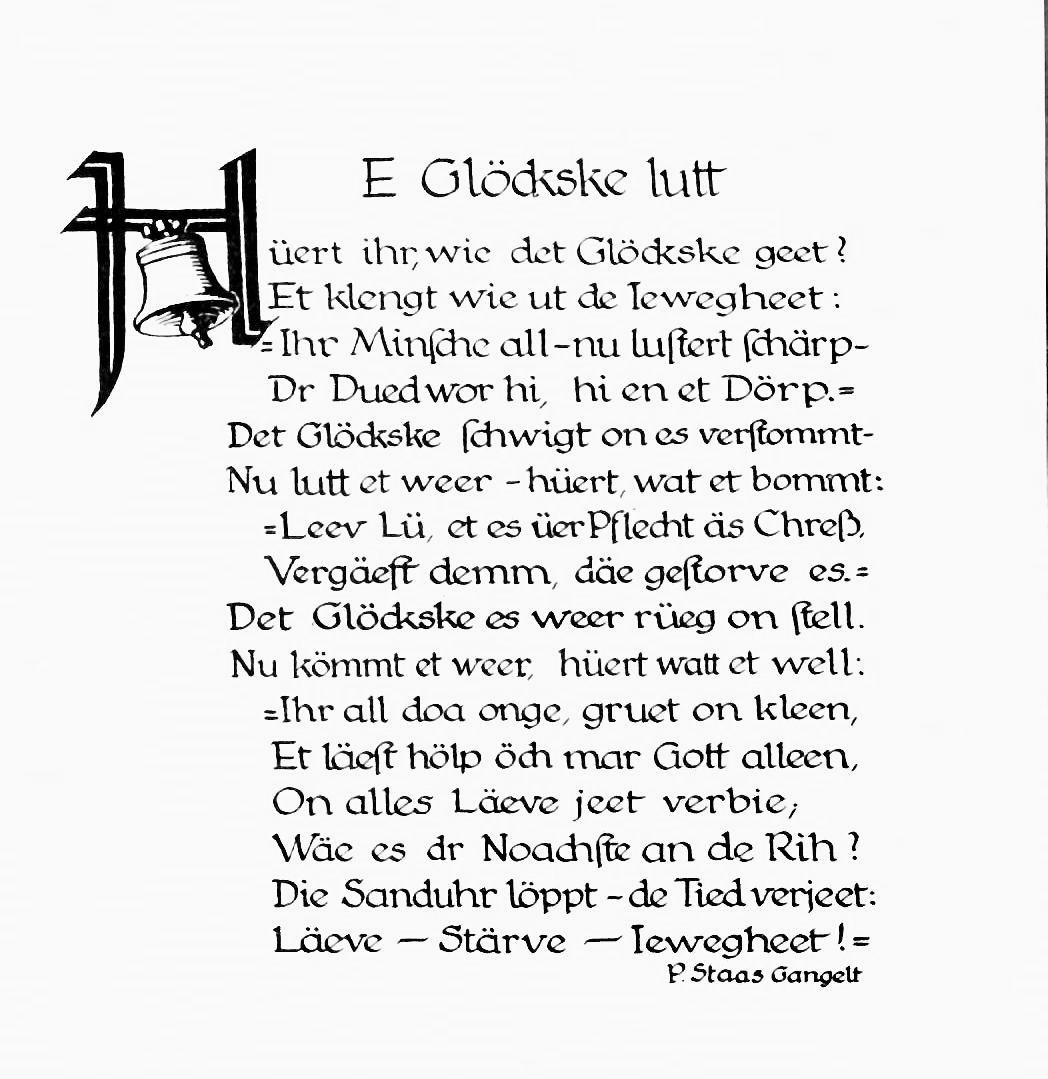 E Glöckske lutt
Hüert ihr, wie det Glöckske geet?
Et klengt wie ut de Iewegheet:
=Ihr Minſche all-nu luſtert ſchärp-
Dr Dued wor hi, hi en et Dörp.=
Det Glöckske ſchwigt on es verſtommt-
Nu lutt et weer - hüert, wat et bommt:
=Leev Lü, et es üer Pflecht äs Chreß,
Vergäeft demm, däe geſtorve es.=
Det Glöckske es weer rüeg on ſtell.
Nu kömmt et weer, hüert watt et well:
=Ihr all doa onge, gruet on kleen,
Et läeſt hölp öch mar Gott alleen,
On alles Läeve jeet verbie,
Wäe es dr Noachſte an de Rih?
Die Sanduhr löppt - de Tied verjeet:
Läeve — Stärve — Iewegheet!=
P. Staas Gangelt